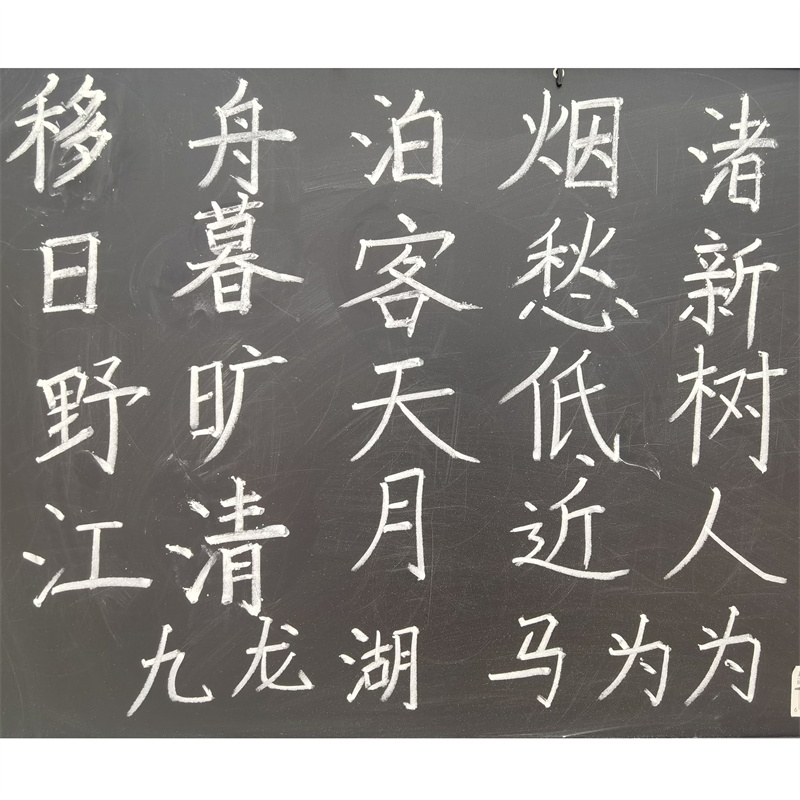 移舟泊烟渚
日暮客愁新
野旷天低树
江清月近人
九龙湖 马为为